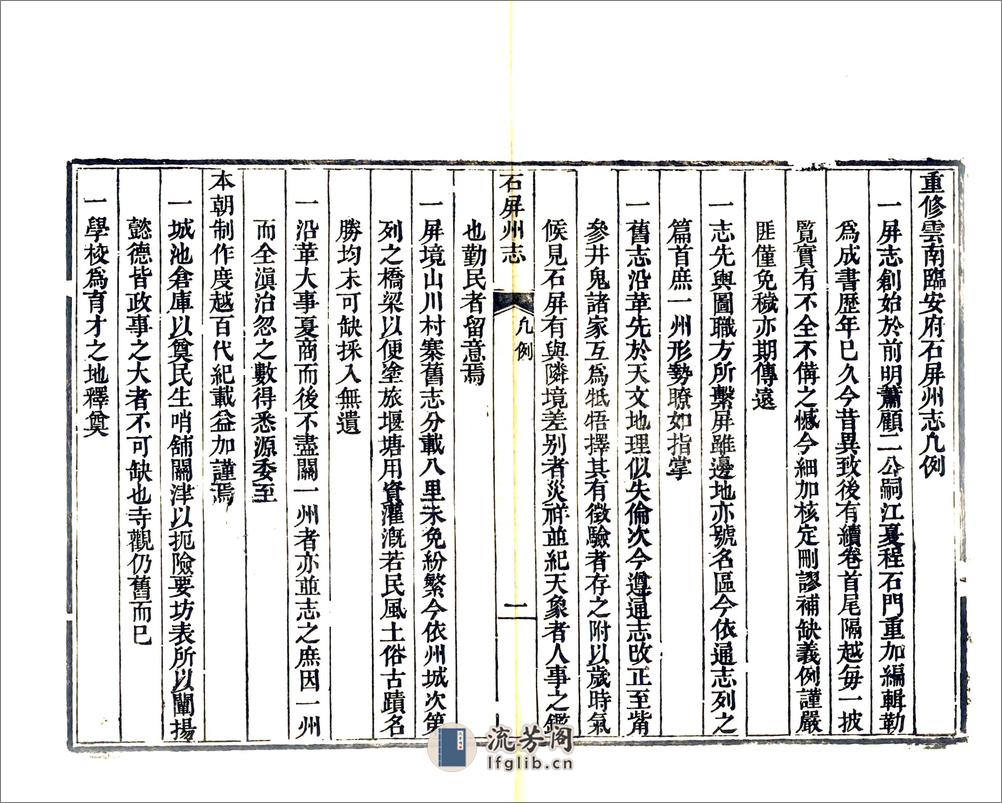 重修雲南臨安府石屏州志凡例
一屏志創始於前明蕭顧二公嗣江夏程石門重加編輯勒
爲成書歷年已久今昔異致後有續卷首尾隔越每一披
覽實有不全不備之憾今細加核定刪謬補缺義例謹嚴
匪僅免穢亦期傳遠
一志先輿圖職方所繫屏雖邊地亦號名區今依通志列之
篇首庶一州形勢瞭如指掌
一舊志沿革先於天文地理似失倫次今遵通志改正至觜
參井鬼諸家互爲牴牾擇其有徵驗者存之附以歲時氣
候見石屏有與隣境差别者災祥並紀天象者人事之鑑
石屏州志
凡例
二
也勤民者留意焉
一屏境山川村寨舊志分載八里未免紛繁今依州城次第
列之橋梁以便塗旅堰塘用資灌漑若民風土俗古蹟名
勝均未可缺採入無遺
一沿革大事夏商而後不盡關一州者亦並志之庶因一州
而全滇治忽之數得悉源委至
本朝制作度越百代紀載益加謹焉
一城池倉庫以奠民生哨舖關津以扼險要坊表所以闡揚
懿德皆政事之大者不可缺也寺觀仍舊而已
一學校爲育才之地釋奠
流芳阁
lfglib.cn